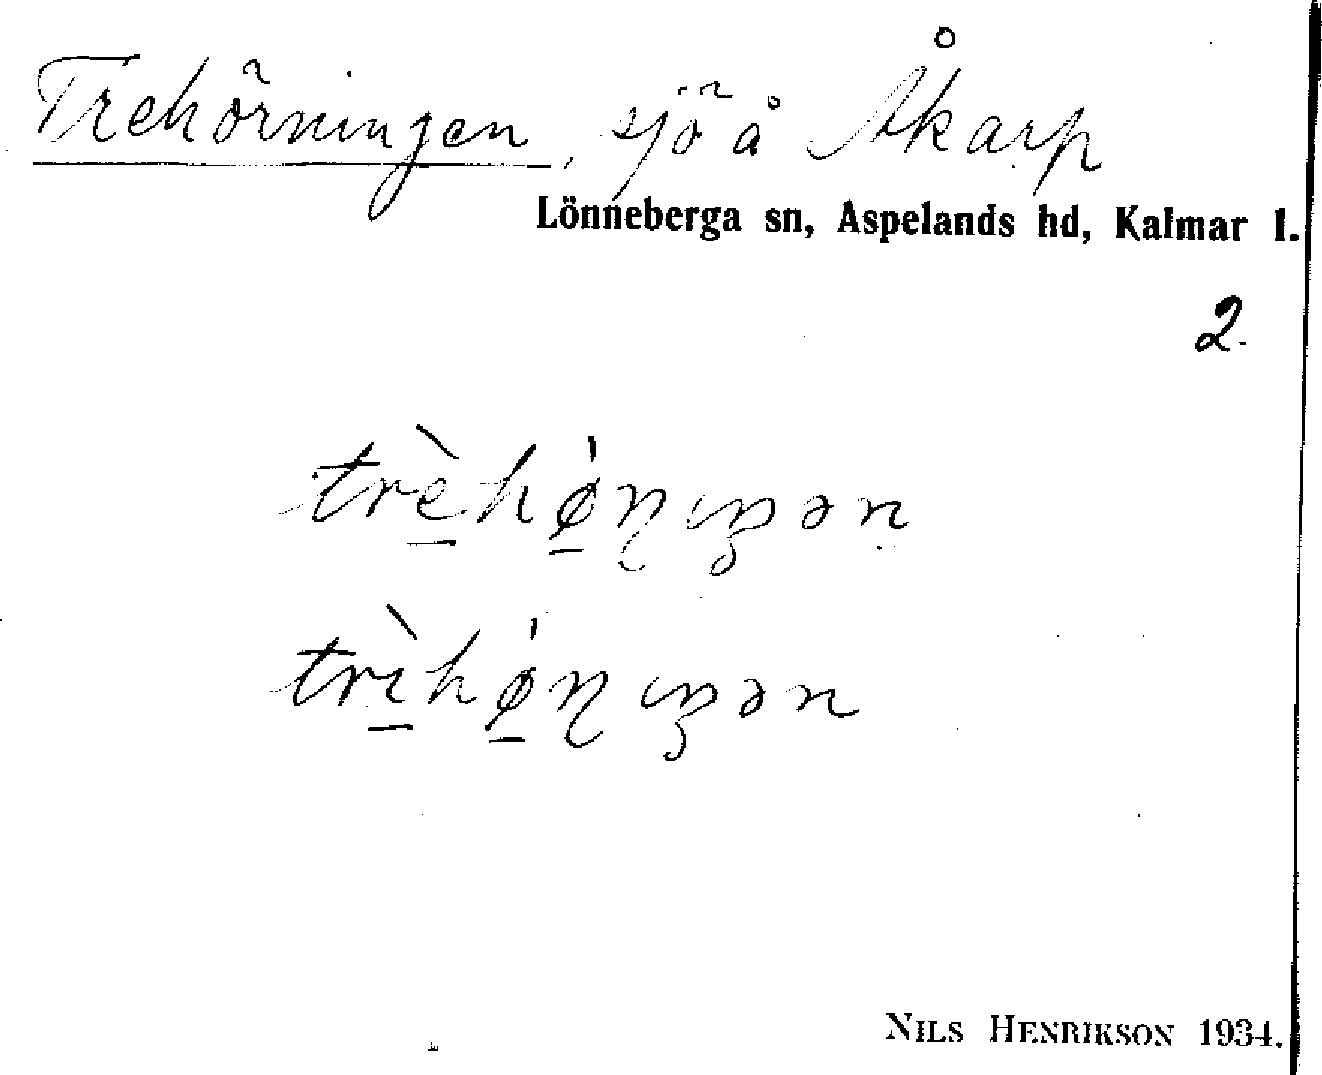 Trehörningen, sjö å Åkarp
Lönneberga sn, Aspelands hd, Kalmar l.
2.
trè̠hǿ̠ɳɪŋən
trɪ̠̀hǿ̠ɳɪŋən
NILS HENRIKSON 1934.